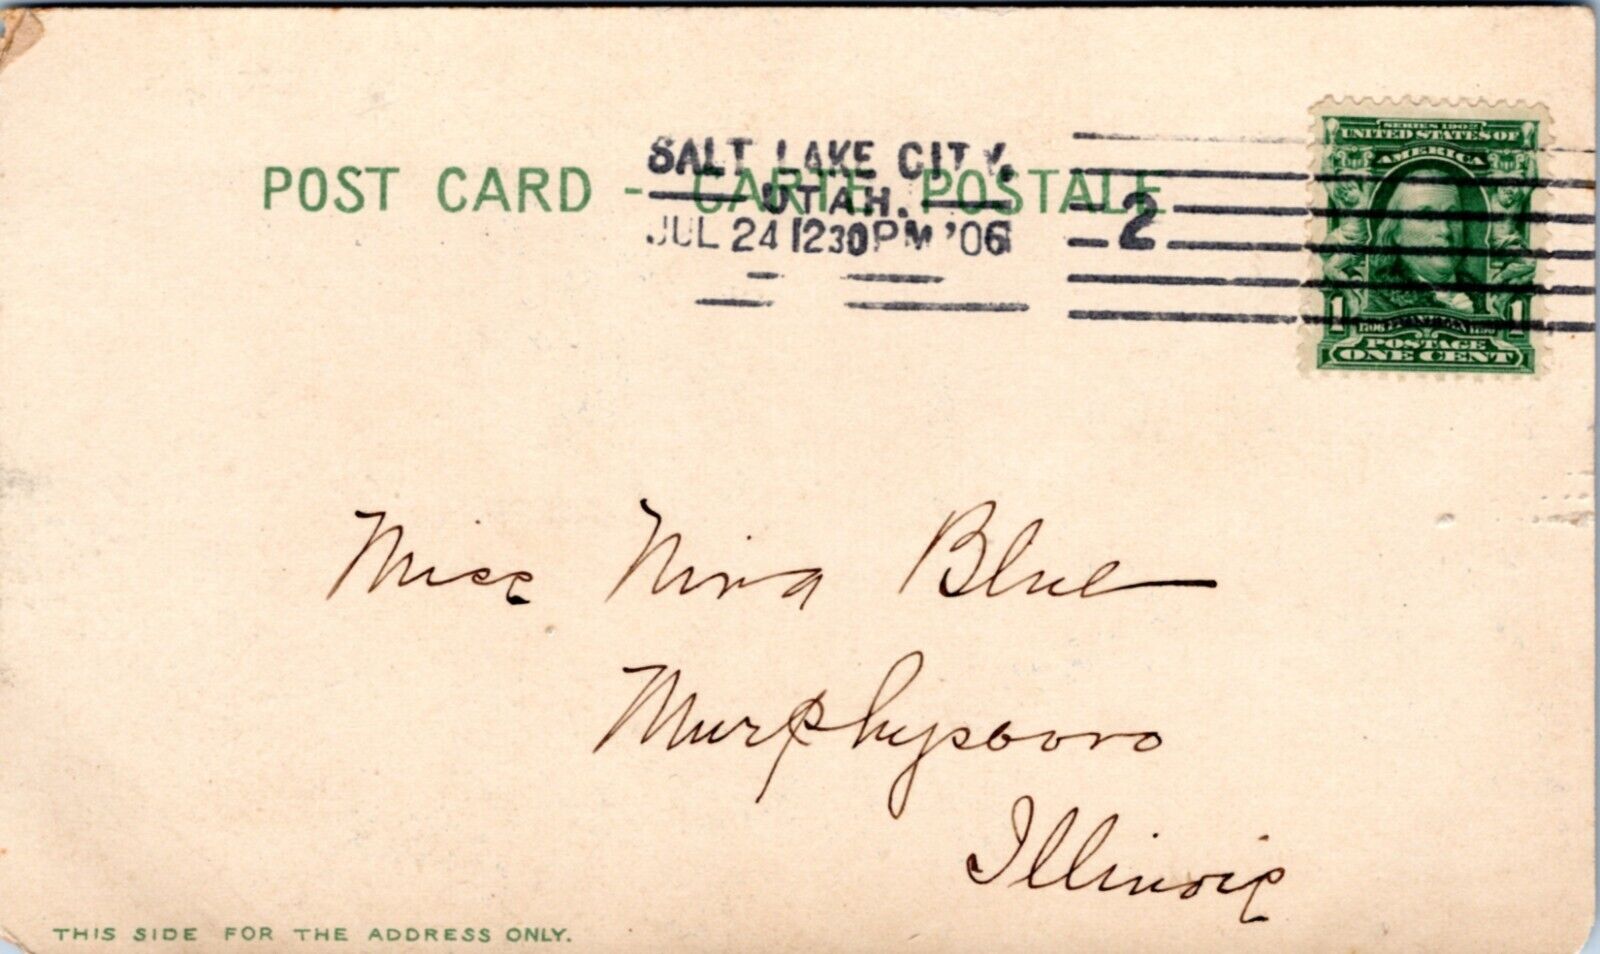 SALT LAKE CITY,
UTAH.
JUL 24 1230PM '06
2
POST CARD - CARTE POSTALE
SERIES 1902
UNITED STATES OF
AMERICA
1 1
POSTAGE
ONE CENT
Miss Nina Blue
Murphysboro
Illinois
THIS SIDE FOR THE ADDRESS ONLY.